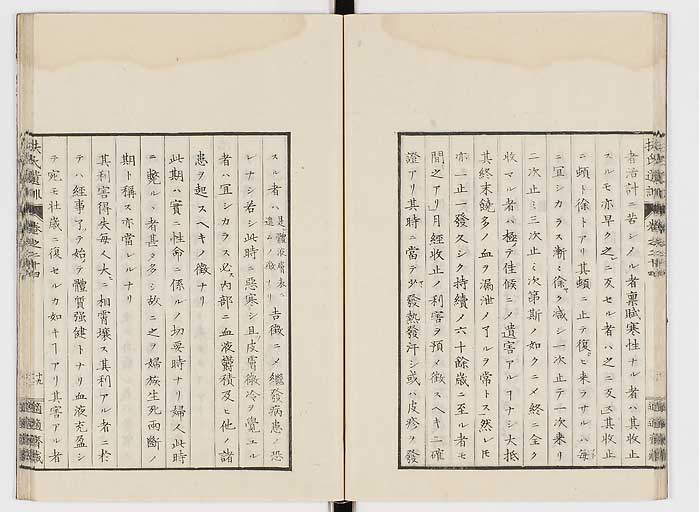 者活計ニ苦シノル者稟賦寒性ナル者ハ其收止
スルモ亦早ク之ニ反セル者ハ之ニ反ス其收止
ニ頓ト徐トアリ其頓ニ止テ復ヒ来ラサルハ毎
ニ宜シカラス漸ミ徐ク減シ一次止テ一次来リ
二次止ミ三次止ミ次第斯ノ如クニメ終ニ全ク
收マル者ハ極テ佳候ニノ遺害アルナシ大抵
其終末饒多ノ血ヲ漏泄ノ了ルヲ常トス然レ𪜈
亦一止一發久シク持續ノ六十餘歳ニ至ル者モ
間之アリ」月經收止ノ利害ヲ預メ徴スヘキニ確
證アリ其時ニ當テ少ク發熱發汗シ或ハ皮疹ヲ發
扶氏遺訓 卷之二十四
スル者ハ是體液膚表ニ進ムノ徴ナリ吉徴ニメ繼發病患ノ恐
レナシ若シ此時ニ惡寒シ且皮膚微冷ヲ覺エル
者ハ宜シカラス必ス内部ニ血液鬱積及ヒ他ノ諸
患ヲ起スヘキノ徴ナリ
此期ハ實ニ性命ニ係ルノ切要時ナリ婦人此時
ニ斃ルヽ者甚タ多シ故ニ之ヲ婦族生死兩斷ノ
期ト稱ス亦當レルナリ
其利害得失毎人大ニ相霄壤ス其利アル者ニ於
テハ經事了テ始テ體質强健トナリ血液充盈シ
テ宛モ壮歳ニ復セルカ如キアリ其害アル者
扶氏遺訓 卷之二十四
十九
適適齋藏